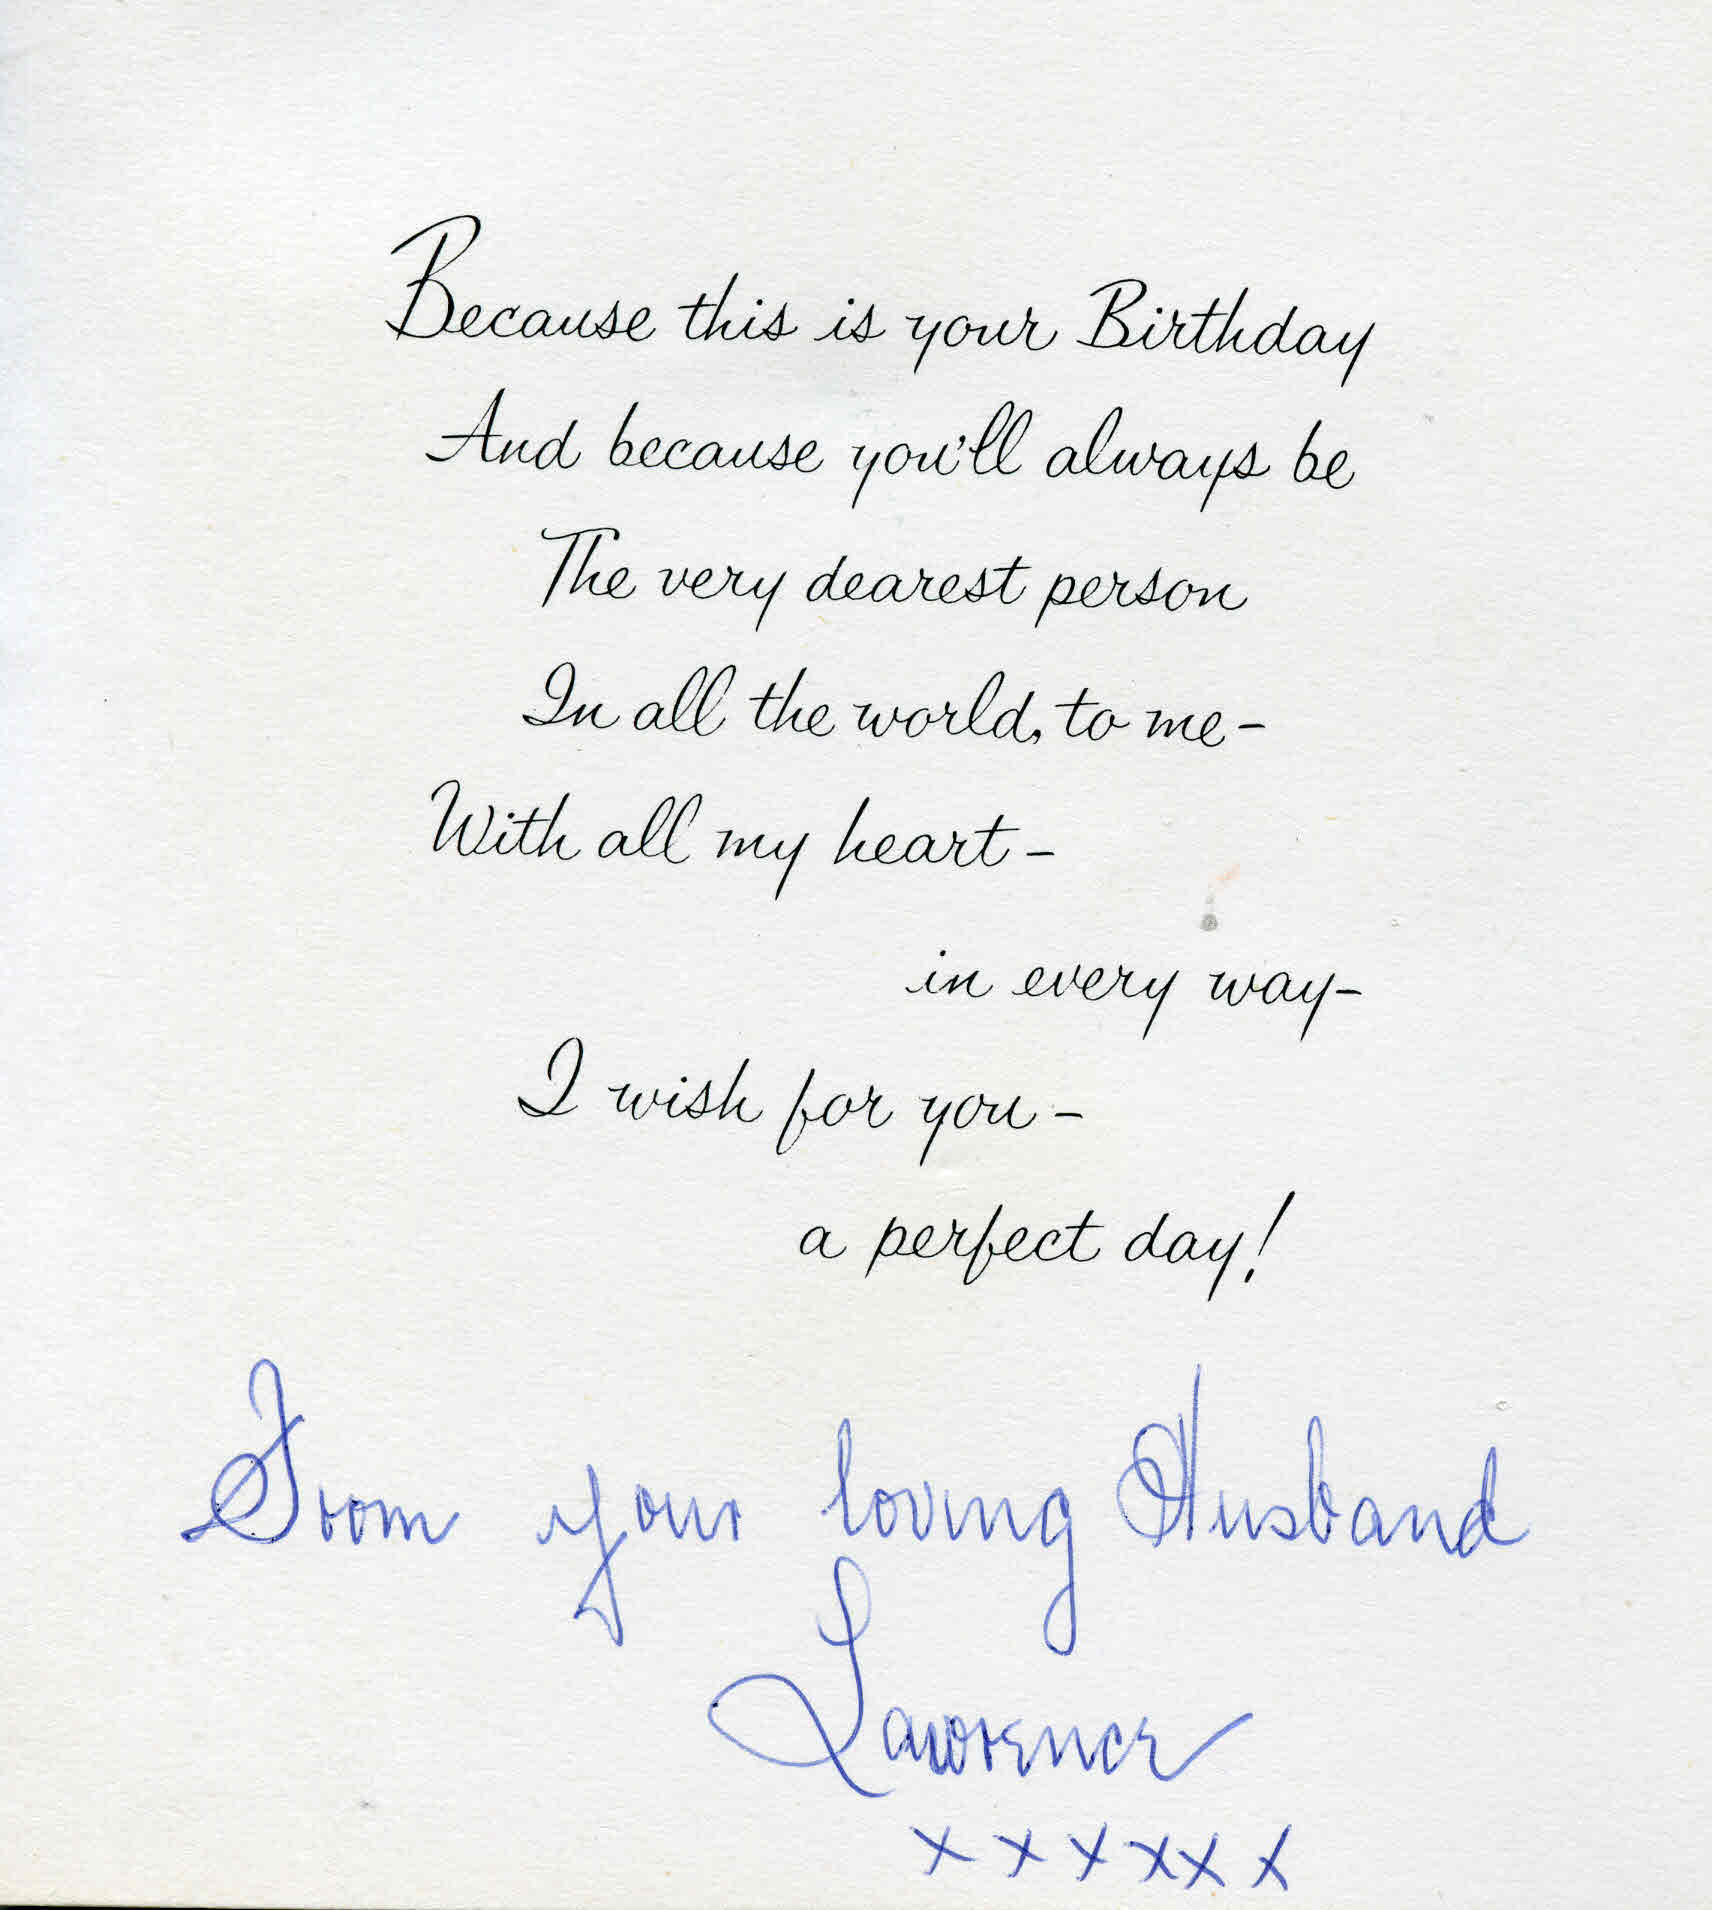 Because this is your Birthday
And because you'll always be
The very dearest person
In all the world, to me-
With all my heart-
in every way-
I wish for you-
a perfect day!
From your loving Husband
Lawrence
x x x x x x